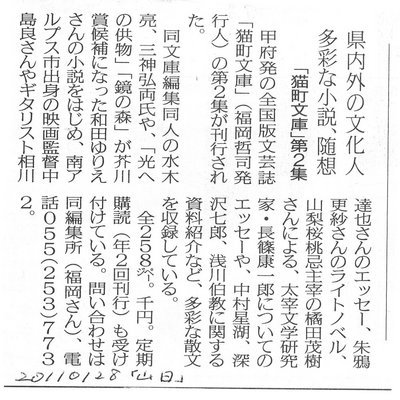 県内外の文化人
多彩な小説、随想
「猫町文庫」第２集
甲府発の全国版文芸誌
「猫町文庫」（福岡哲司発
行人）の第２集が刊行され
た。
同文庫編集同人の水木
亮、三神弘両氏や、「光へ
の供物」「鏡の森」が芥川
賞候補になった和田ゆりえ
さんの小説をはじめ、南ア
ルプス市出身の映画監督中
島良さんやギタリスト相川
達也さんのエッセー、朱鴉
更紗さんのライトノベル、
山梨桜桃忌主宰の橘田茂樹
さんによる、太宰文学研究
家・長篠康一郎についての
エッセーや、中村星湖、深
沢七郎、浅川伯教に関する
資料紹介など、多彩な散文
を収録している。
全２５８㌻。千円。定期
購読（年２回刊行）も受け
付けている。問い合わせは
同編集所（福岡さん）、電
話０５５（２５３）７７３
２。
20110128「山日」